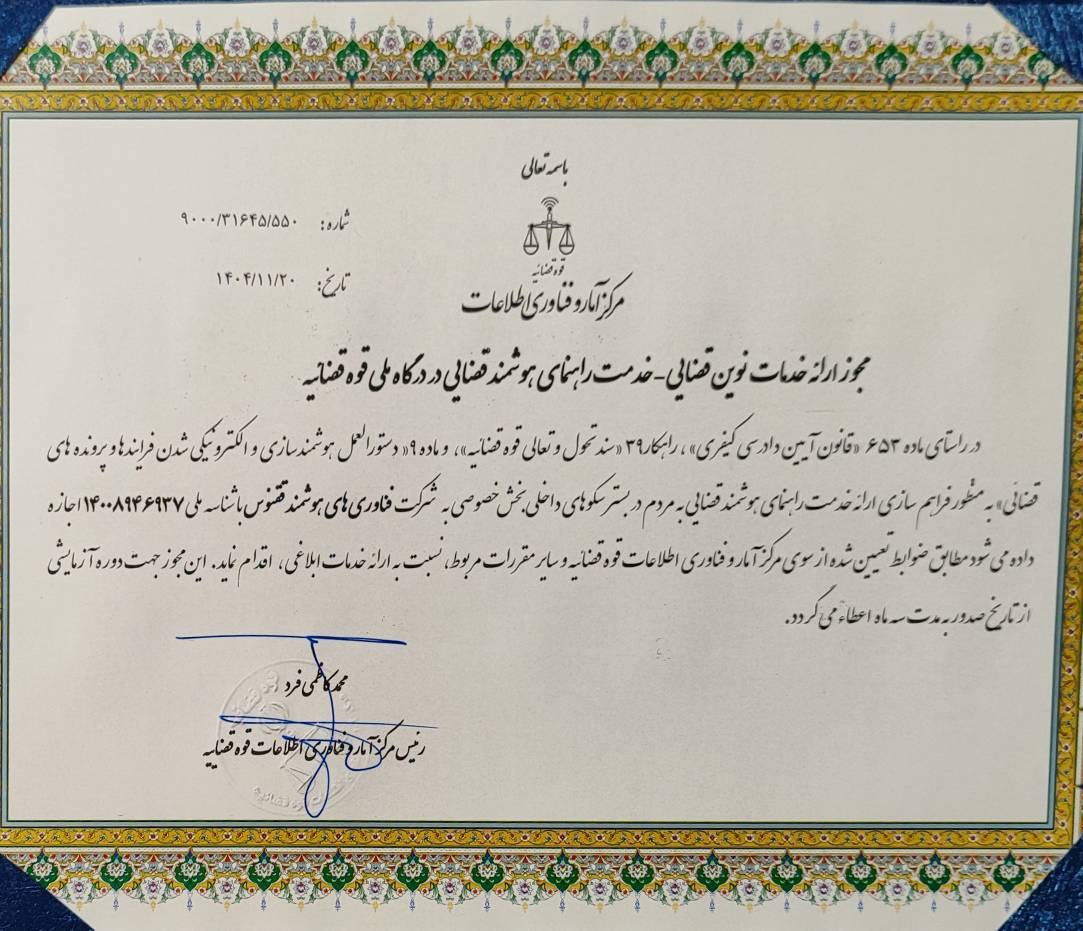 باسمه تعالی
شماره: ۹۰۰۰/۳۱۶۴۵/۵۵۰
قوه قضائیه
تاریخ: ۱۴۰۴/۱۱/۲۰
مرکز آمار و فناوری اطلاعات
مجوز ارائه خدمات نوین قضایی - خدمت راهنمای هوشمند قضایی در درگاه ملی قوه قضائیه
در راستای ماده ۶۵۳ «قانون آیین دادرسی کیفری»، راهکار ۳۹ «سند تحول و تعالی قوه قضائیه»، و ماده ۹ «دستورالعمل هوشمند سازی و الکترونیکی شدن فرایندها و پرونده های
قضائی» به منظور فراهم سازی ارائه خدمت راهنمای هوشمند قضایی به مردم در بستر سکوهای داخلی بخش خصوصی به شرکت فناوری های هوشمند ققنوس با شناسه ملی ۱۴۰۰۸۹۴۶۹۳۷ اجازه
داده می شود مطابق ضوابط تعیین شده از سوی مرکز آمار و فناوری اطلاعات قوه قضائیه و سایر مقررات مربوط، نسبت به ارائه خدمات ابلاغی، اقدام نماید. این مجوز جهت دوره آزمایشی
از تاریخ صدور به مدت سه ماه اعطاء می گردد.
محمد کاظمی فرد
رئیس مرکز آمار و فناوری اطلاعات قوه قضاییه